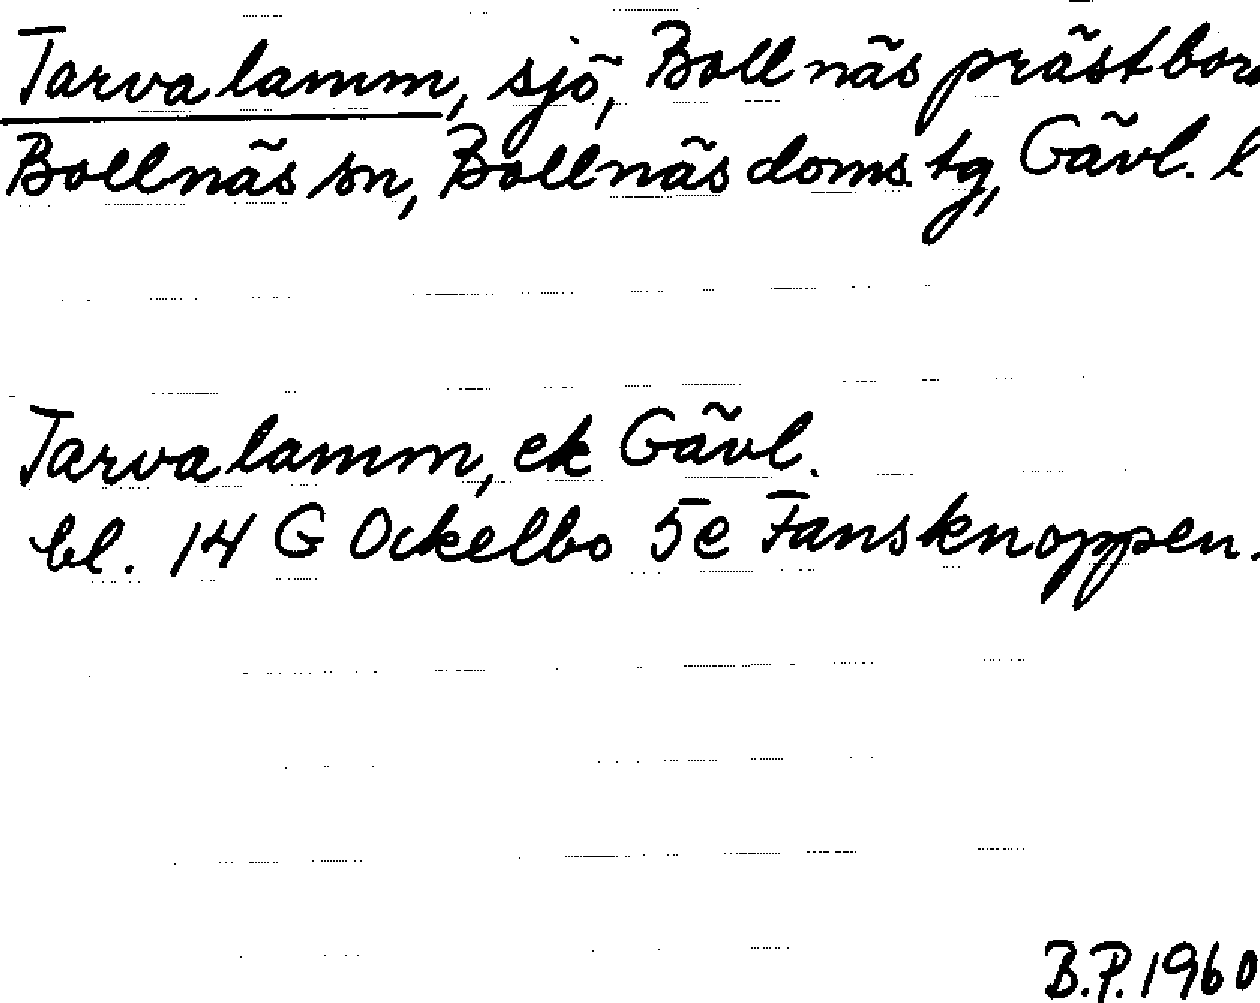 Tarvalamm, sjö, Bollnäs prästbor
Bollnäs sn, Bollnäs doms. tg, Gävl. l
Tarvalamm, ek Gävl.
bl. 14 G Ockelbo 5e Fansknoppen.
B.P. 1960